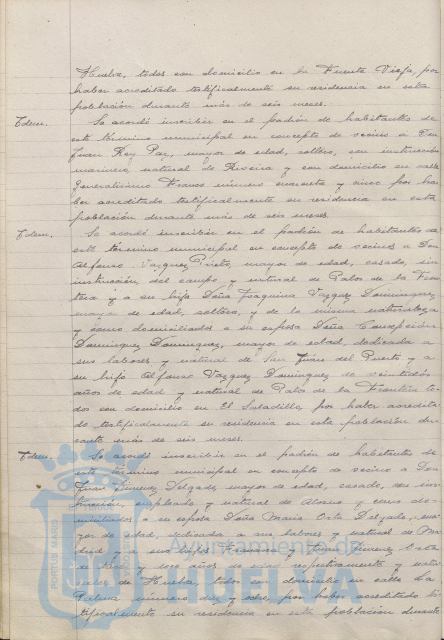 Huelva, todos con domicilio en la Fuente Vieja, por
haber acreditado testificalmente su residencia en esta
población durante más de seis meses.
Idem. Se acordó inscribir en el padrón de habitantes de
este término municipal en concepto de vecino a Don
Juan Rey Paz, mayor de edad, soltero, con instrucción
marinero, natural de y con domicilio en calle
Generalísimo Franco número cuarenta y cinco por ha-
ber acreditado testificalmente su residencia en esta
población durante más de seis meses.
Idem. Se acordó inscribir en el padrón de habitantes de
este término municipal en concepto de vecinos a Don
Alfonso Vazquez Prieto, mayor de edad, casado, sin
instrucción del campo y natural de Palos de la Fron-
tera y a su hija Doña Joaquina Vazquez Dominguez,
mayor de edad, soltera, y de la misma naturaleza
y como domiciliados a su esposa Doña Concepción
Dominguez Dominguez, mayor de edad, dedicada a
sus labores y natural de San Juan del Puerto y a
su hijo Alfonso Vazquez Dominguez de veintidos
años de edad y natural de Palos de la Frontera to-
dos con domicilio en El Saladillo, por haber acredita-
do testificalmente su residencia en esta población du-
rante más de seis meses.
Idem. Se acordó inscribir en el padrón de habitantes de
este término municipal en concepto de vecino a Don
Juan Jimenez Delgado, mayor de edad, casado, con ins-
trucción, empleado y natural de Alosno y como do-
miciliados a su esposa Doña Maria Orta Delgado, ma-
yor de edad, dedicada a sus labores y natural de Ma-
drid y a sus hijos Francisco y Juan Jimenez Orta
de y once años de edad respectivamente y natu-
rales de Huelva todos con domicilio en calle La
Palma número diez y ocho por haber acreditado tes-
tificalmente su residencia en esta población durante
PORTUS MARIS
Ayuntamiento de
HUELVA